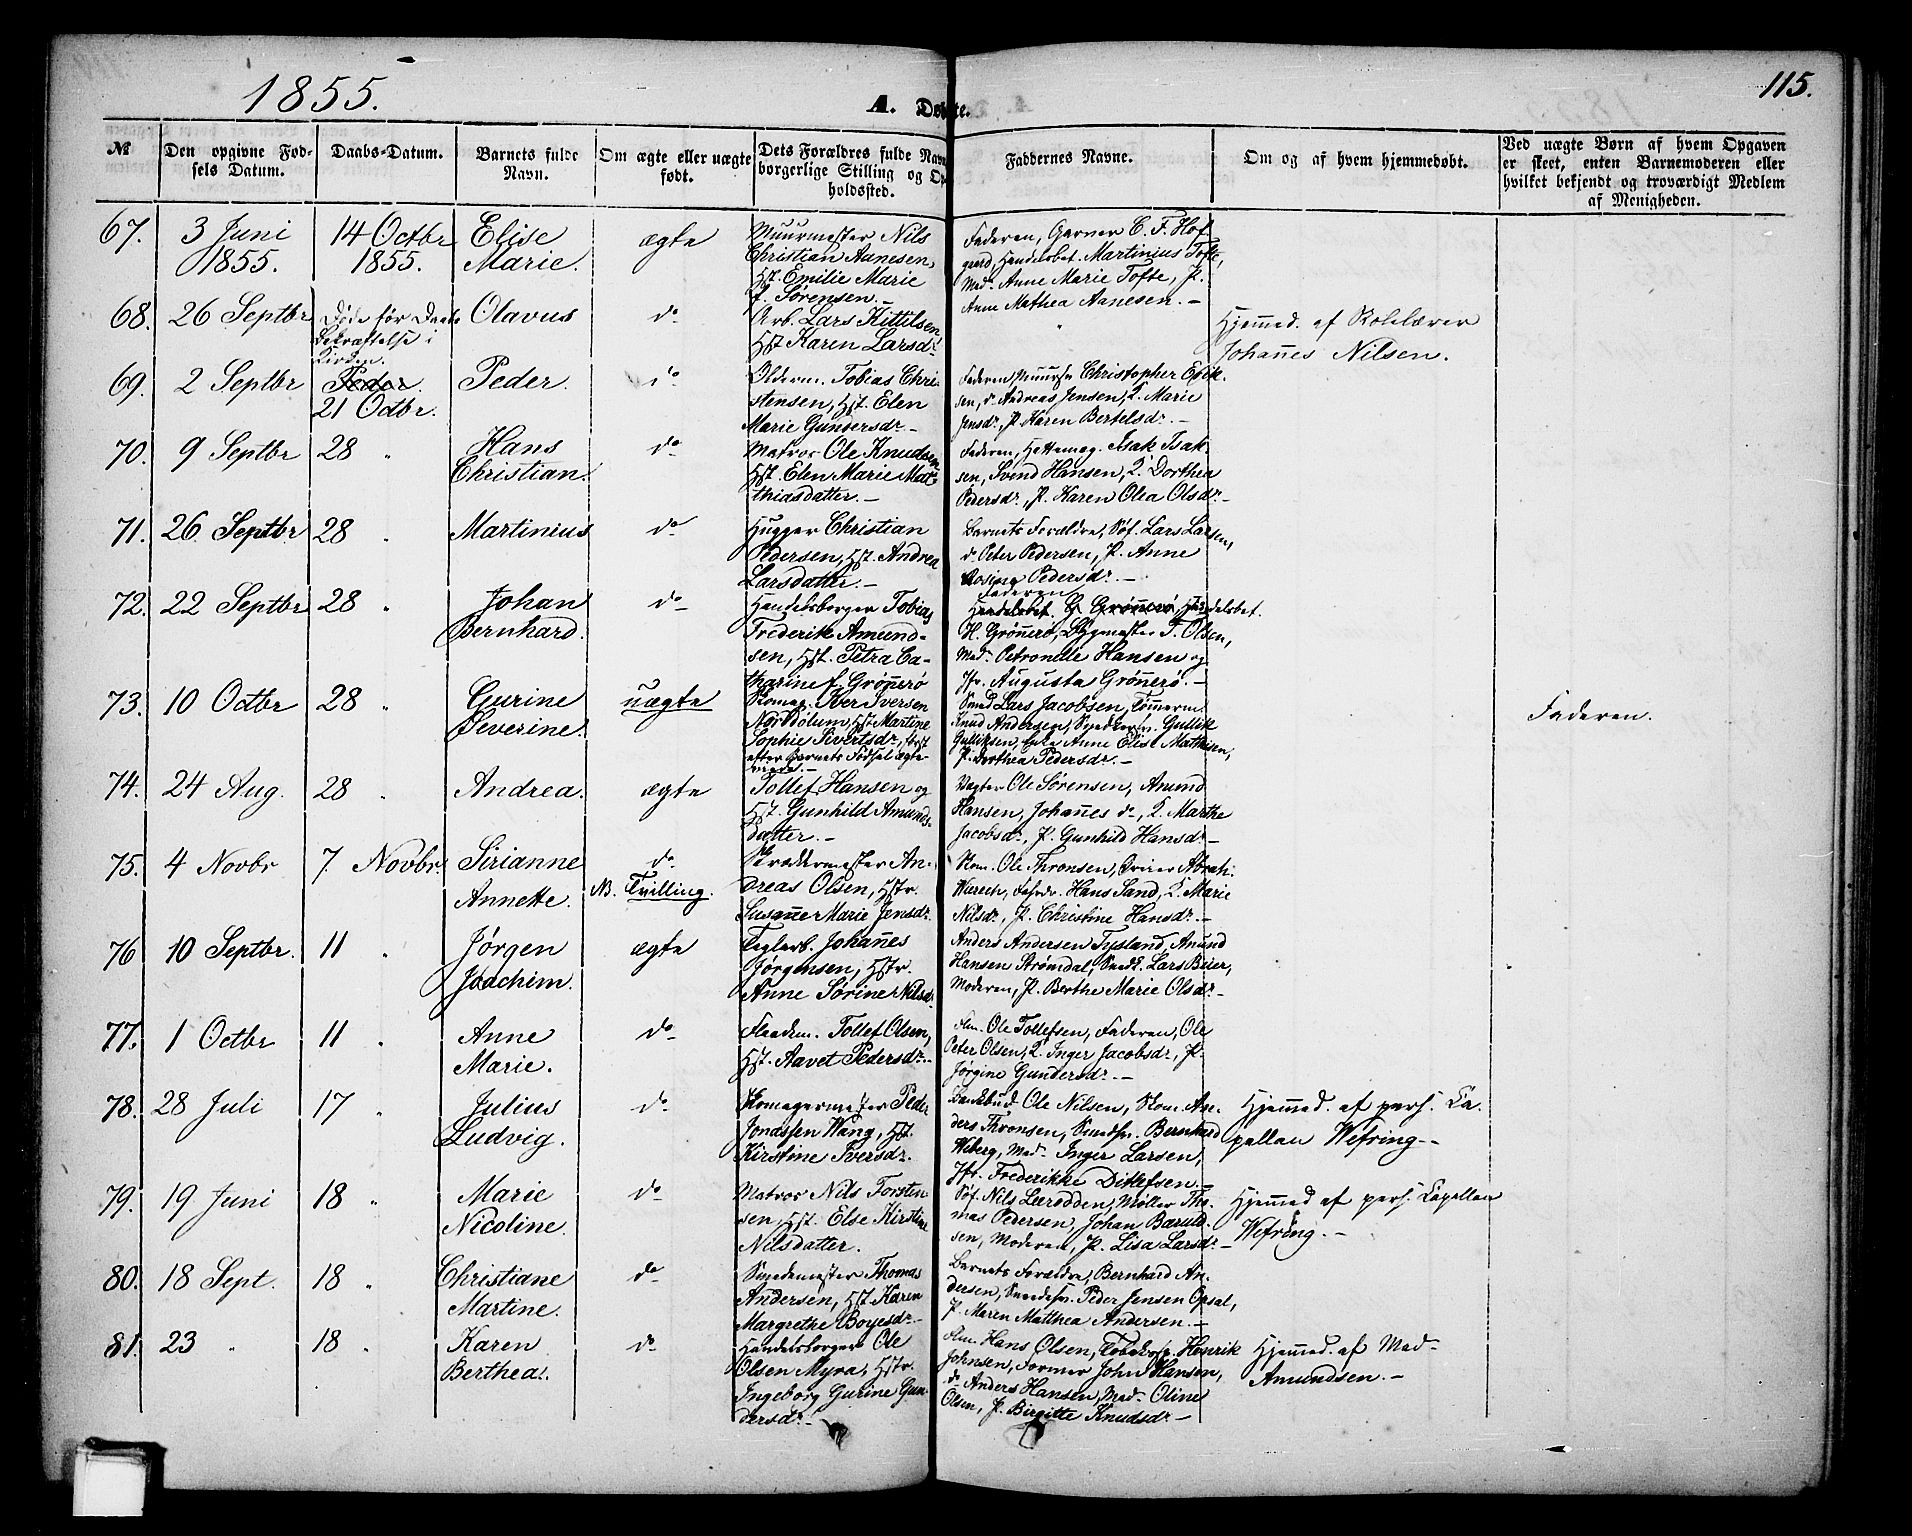 1855.
A. Døbte.
115.
№
Den opgivne Fød-
sels Datum.
Daabs-Datum.
Barnets fulde
Navn.
Om ægte eller uægte
født.
Dets Forældres fulde Navn
borgerlige Stilling og Op
holdssted.
Faddernes Navne.
Om og af hvem hjemmedøbt.
Ved uægte Børn af hvem Opgaven
er skeet, enten Barnemoderen eller
hvilket bekjendt og troværdigt Medlem
af Menigheden.
67.
3 Juni
1855.
14 Octbr
1855.
Elise
Marie.
ægte
Muurmester Nils
Christian Aanesen,
Hst. Emilie Marie
f. Sørensen.-
Faderen, Garver C. F. Hof
gaard, Handelsbet. Martinius Tofte,
Mad. Anne Marie Tofte, P.
Anne Mathea Aanesen.-
68.
26 Septbr
Døde før Daabs
Bekræftelse i
Kirken.
Olavus
do
Arb. Lars Kittilsen
Hst Karen Larsdr
Hjemmed. af Skolelærer
Johañes Nilsen.
69.
2 Septbr
Peder.
21 Octbr.
Peder.
do
Olderm. Tobias Chri-
stensen, Hst. Elen
Marie Gundersdr-
Faderen, Muursv. Christopher Erik-
sen, do Andreas Jensen, K. Marie
Jensdr, P. Karen Bertelsdr.-
70.
9 Septbr
28 "
Hans
Christian.
do
Matros Ole Knudsen
Hst. Elen Marie Mat
thiasdatter.-
Faderen, Hattemag. Isak Isak-
sen, Svend Hansen, K. Dorthea
Pedersdr, P. Karen Olea Olsdr-
71.
26. Septbr
28 "
Martinius
do
Hugger Christian
Pedersen, Hst. Andrea
Larsdatter.-
Barnets Forældre, Søf. Lars Larsen,
do Peter Pedersen, P. Anne
Rosine Pedersdr.-
72.
22 Septbr
28 "
Johan
Bernhard.
do
Handelsborger Tobias
Frederik Amund-
sen, Hst. Petra Ca-
tharine f. Grøñerø
Faderen
Handelsbet. G Grøñerø, Handelsbet.
H. Grøñerø, Bygmester T. Olsen,
Mad. Petronelle Hansen og
Jfr. Augusta Grøñerø.-
73.
10 Octbr
28 "
Gurine
Severine.
uægte
Skomag. Iver Iversen
Norddølum, Hst Martine
Sophie Sivertsdr, først
efter Barnets Fødsel ægte-
viede.-
Smed Lars Jacobsen, Tømerm.
Knud Andersen, Smedesv. Gullik
Gulliksen, Enke Anne Elise Mathisen,
P. Dorthea Pedersdr.-
Faderen.
74.
24 Aug.
28 "
Andrea.
ægte
Tollef Hansen og
Hst. Gunhild Amunds-
datter.-
Vagter Ole Sørensen, Amund
Hansen, Johañes do, K. Marthe
Jacobsdr, P. Gunhild Hansdr-
75.
4 Novbr
7. Novbr.
Sirianne
Annette.
do
NB. Tvilling.
Skrædermester An-
dreas Olsen, Hstr.
Susañe Marie Jensdr.
Skom. Ole Thronsen,
Hans Sand, K. Marie
Nilsdr, P. Christine Hansdr.-
76
10 Septbr.
11 "
Jørgen
Joachim.
ægte
Teglarb. Johañes
Jørgensen, Hstr.
Anne Sørine Nilsdr
Anders Andersen Tysland, Amund
Hansen Strømdal, Smedk. Lars Beier,
Moderen, P. Berthe Marie Olsdr-
77.
1 Octbr
11 "
Anne
Marie.
do
Flaadem. Tollef Olsen,
Hst. Aavet Pedersdr.
Flm. Ole Tollefsen, Faderen, Ole
Peter Olsen, K. Inger Jacobsdr, P.
Jørgine Gundersdr.-
78.
28 Juli
17 "
Julius
Ludvig.
do
Skomagermester Peder
Jonassen Wang, Hst.
Kirstine Iversdr.
Bankbud Ole Nilsen, Skom. An-
ders Thronsen, Smedsv. Bernhard
Wiberg, Mad- Inger Larsen,
Jfr. Frederikke Ditlefsen.-
Hjemmed. af pers. Ca-
pellan Wefring-
79.
19 Juni
18 "
Marie
Nicoline.
do
Matros Nils Torsten
sen, Hst. Else Kirstine
Nilsdatter.
Søf. Nils Leerodden, Møller Tho-
mas Pedersen, Johan Barud-
sen, Moderen, P. Lisa Larsdr-
Hjemmed af pers. Capellan
Wefring.-
80.
18 Sept.
18 "
Christiane
Martine.
do
Smedemester Thomas
Andersen, Hst. Karen
Margrethe Boyesdr-
Barnets Forældre, Bernhard An-
dersen, Smedesv. Peder Jensen Opsal,
P. Maren Matthea Andersen.-
81.
23 "
18 "
Karen
Berthea.
do
Handelsborger Ole
Olsen Myra, Hstr.
Ingeborg Gurine Gun
dersdr.
Flm. Hans Olsen, Henrik
Johnsen, Former John Hansen,
do Anders Hansen, Mad- Oline
Olsen, P. Birgitte Knudsdr-
Hjemmed. af Mad-
Amundsen.-